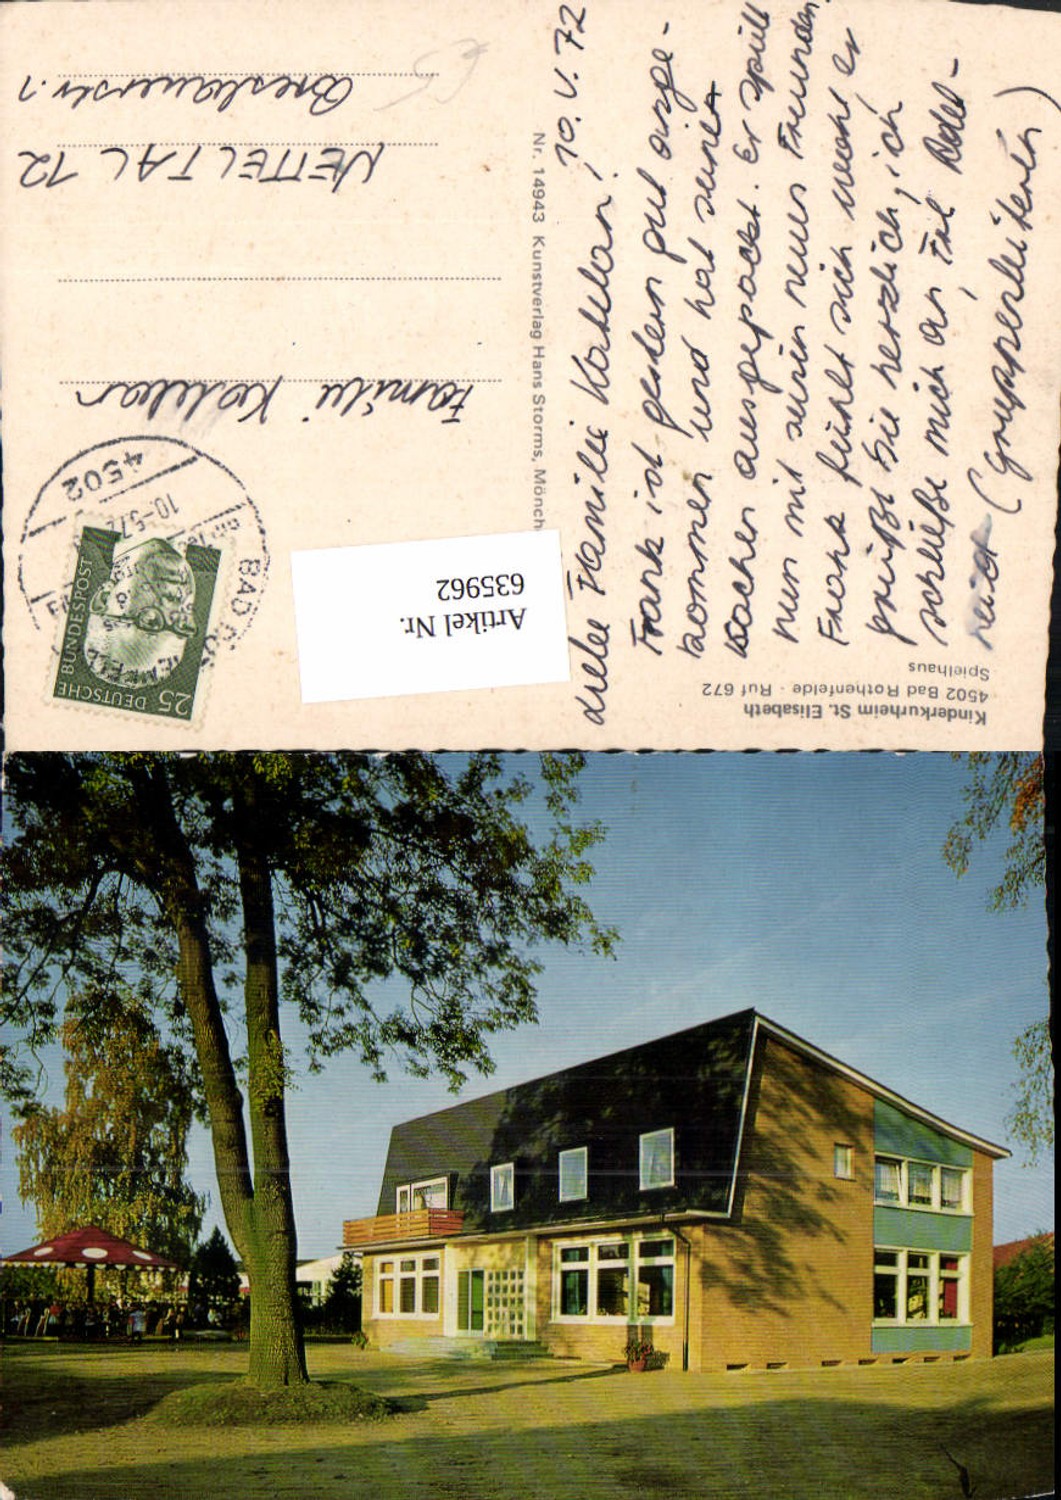 Kinderkurheim St. Elisabeth
4502 Bad Rothenfelde · Ruf 672
Spielhaus
10. V. 72
Liebe Familie
Frank ist gestern gut ange-
kommen und hat seine
Sachen ausgepackt. Er spielt
nun mit seinen neuen Freunden.
Frank fühlt sich wohl er
grüßt Sie herzlich, ich
schließe mich an
(Gruppenleiterin)
Nr. 14943 Kunstverlag Hans Storms, Mönch
Familie
NETTETAL 12
Breslauerstr. 1
25
DEUTSCHE
BUNDESPOST
4502
BAD
10.-5.72
Artikel Nr.
635962